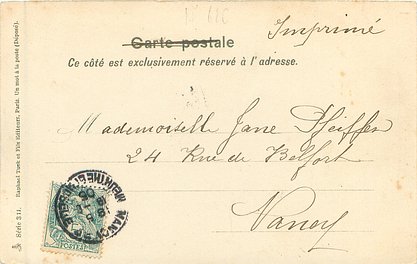 N° 616
Imprimé
Carte postale
Ce côté est exclusivement réservé à l'adresse.
Mademoiselle Jane Pfeiffer
24 Rue de Belfort
Nancy
Série 311. Raphael Tuck et Fils Editeurs, Paris. Un mot à la poste (Déposé).